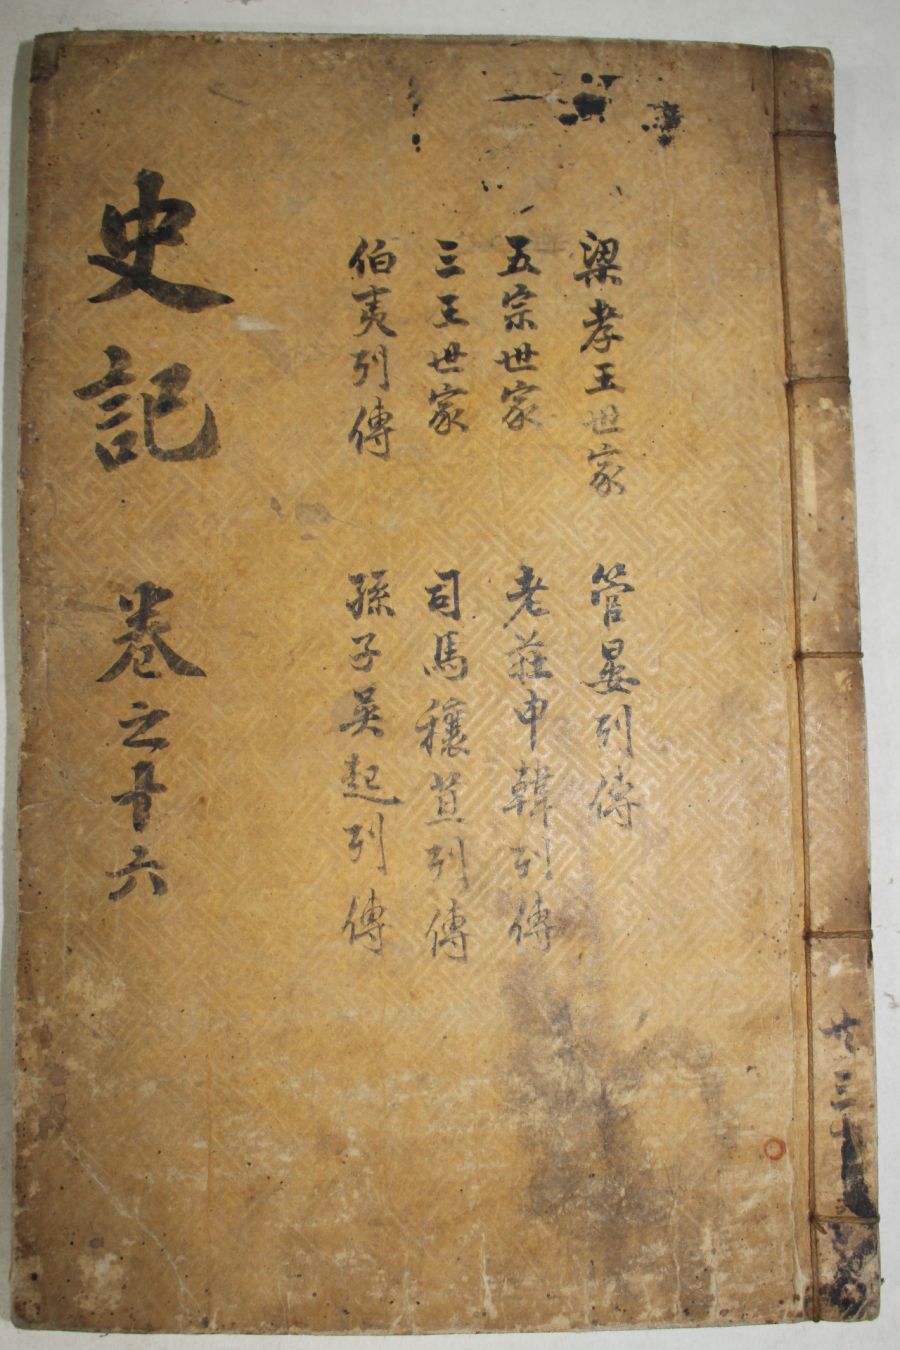 史記 卷之十六
梁孝王世家
五宗世家
三王世家
伯夷列傳
管晏列傳
老莊申韓列傳
司馬穰苴列傳
孫子吳起列傳
廿三